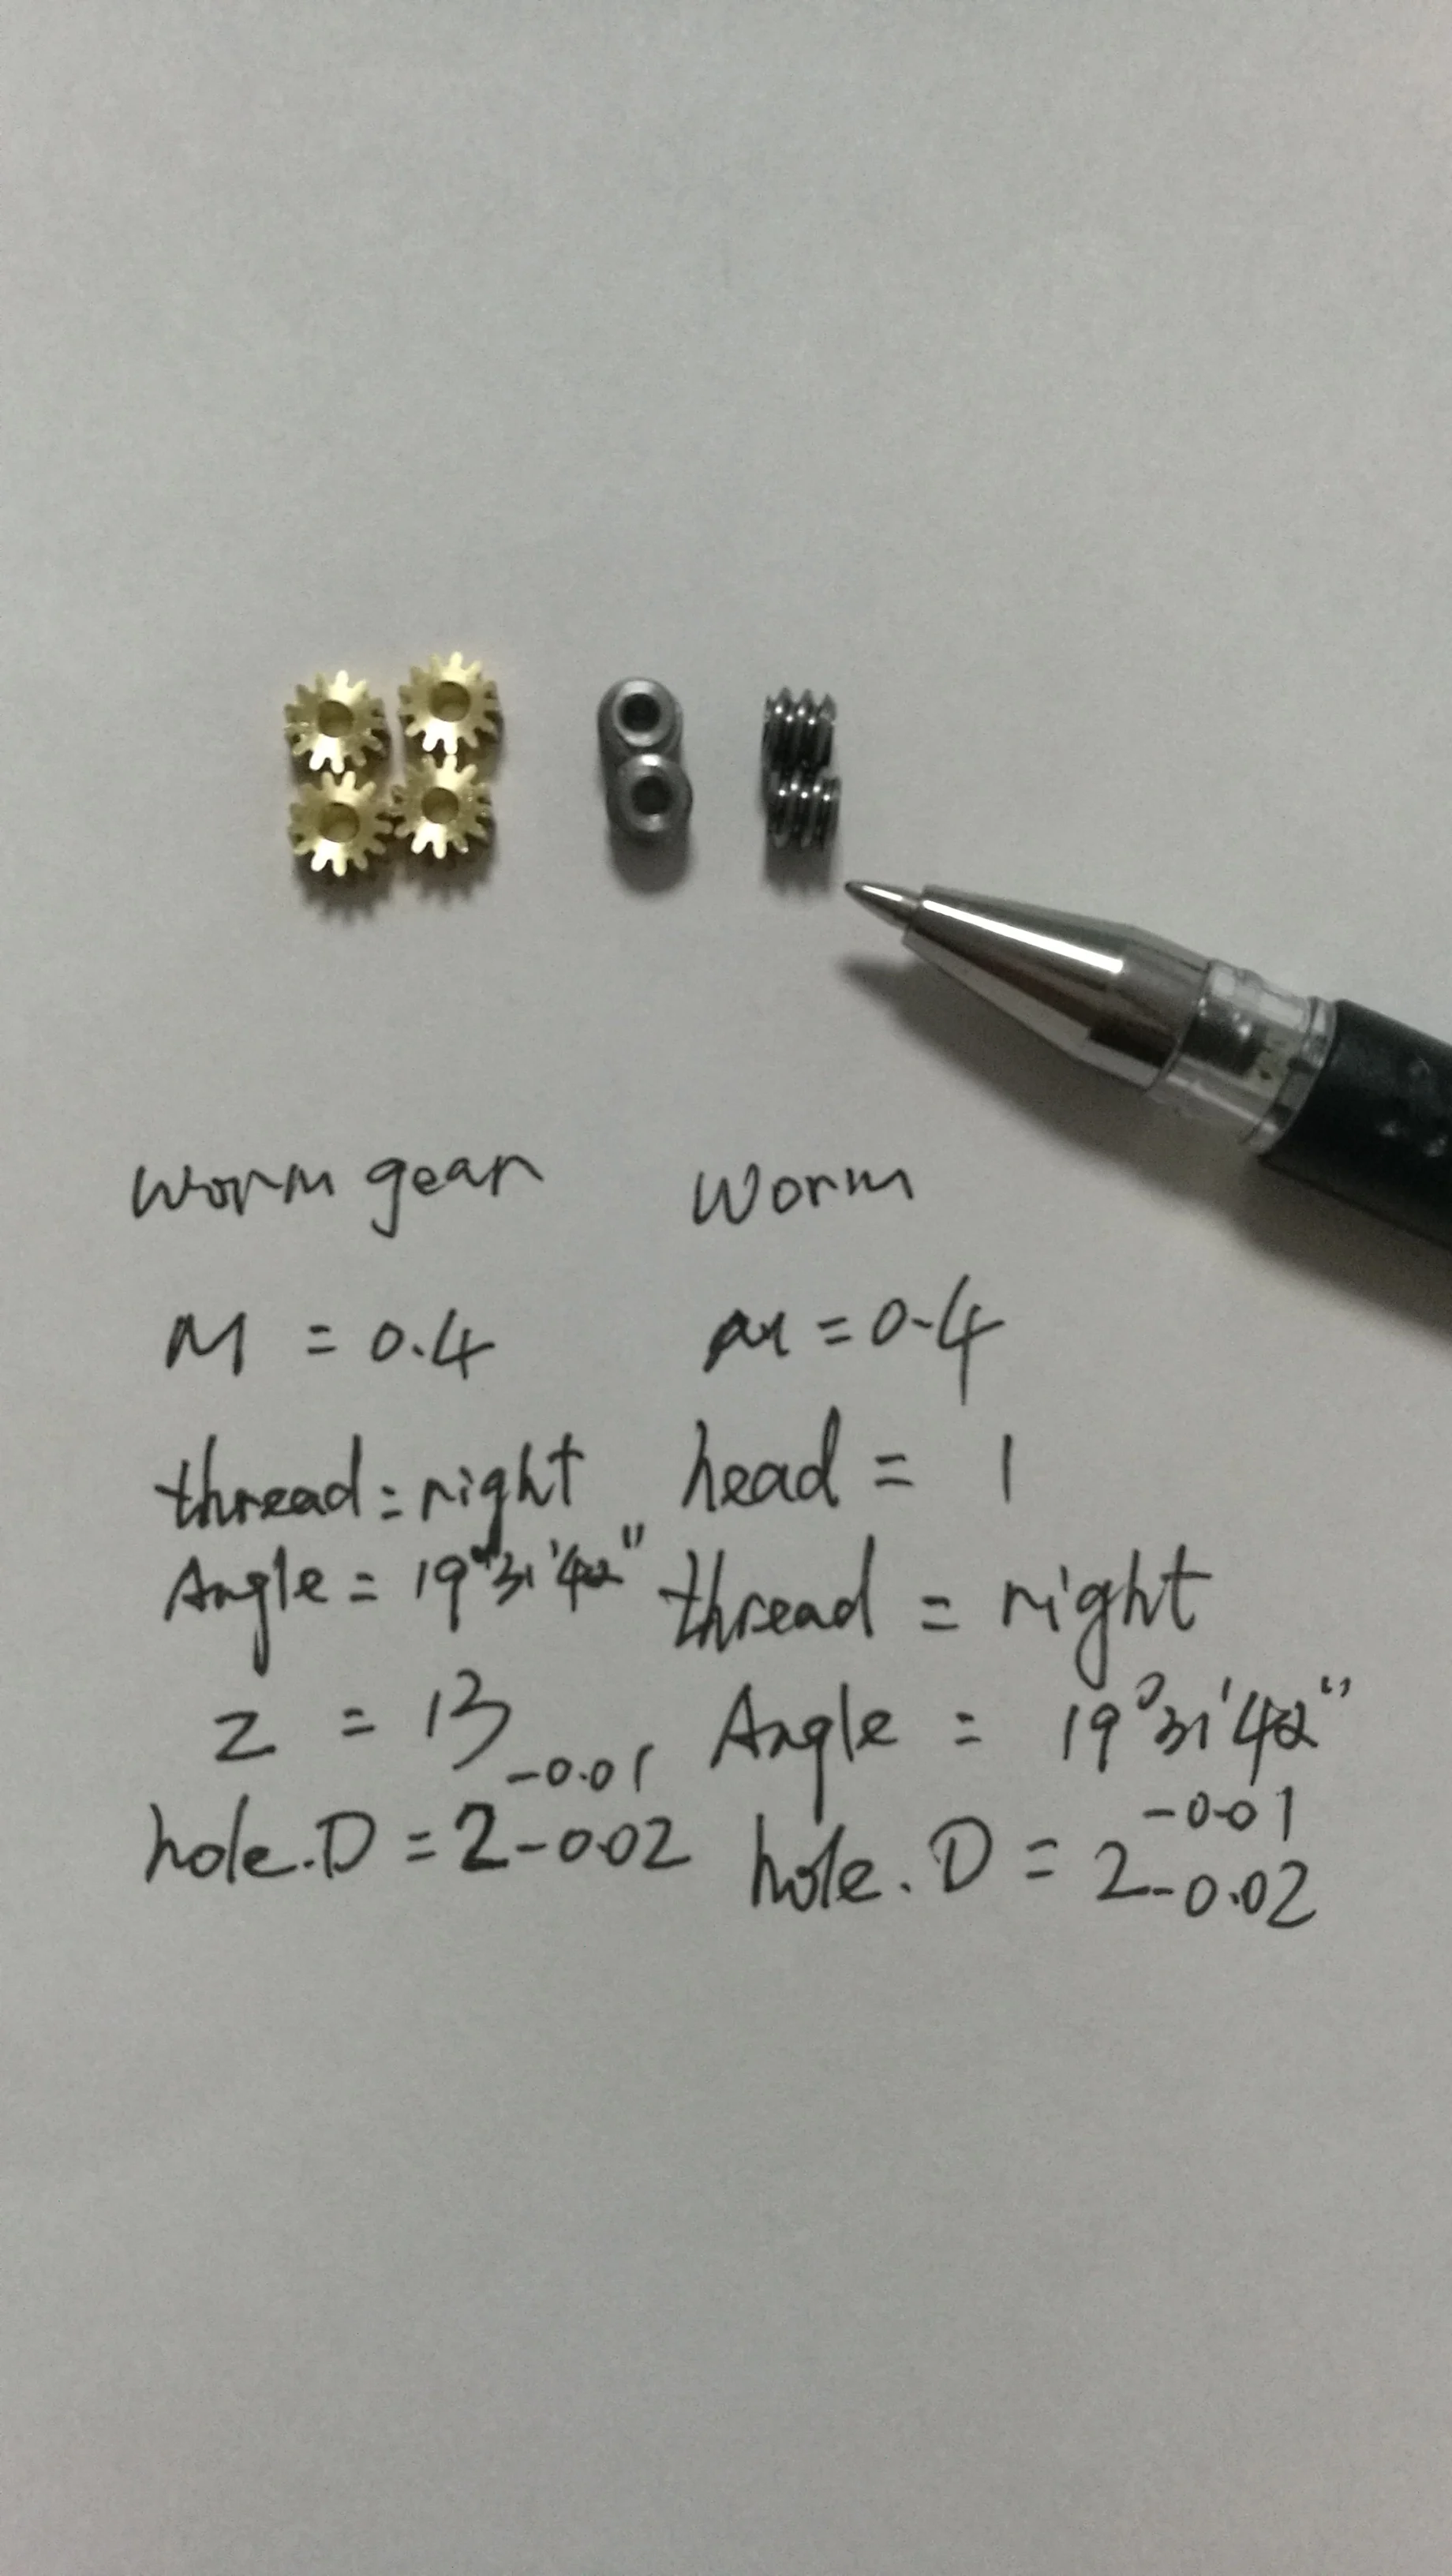 worm gear
M = 0.4
thread = right
Angle = 19°31'42"
z = 13
hole.D = 2 -0.01 -0.02
worm
m = 0.4
head = 1
thread = right
Angle = 19°31'42"
hole.D = 2 -0.01 -0.02